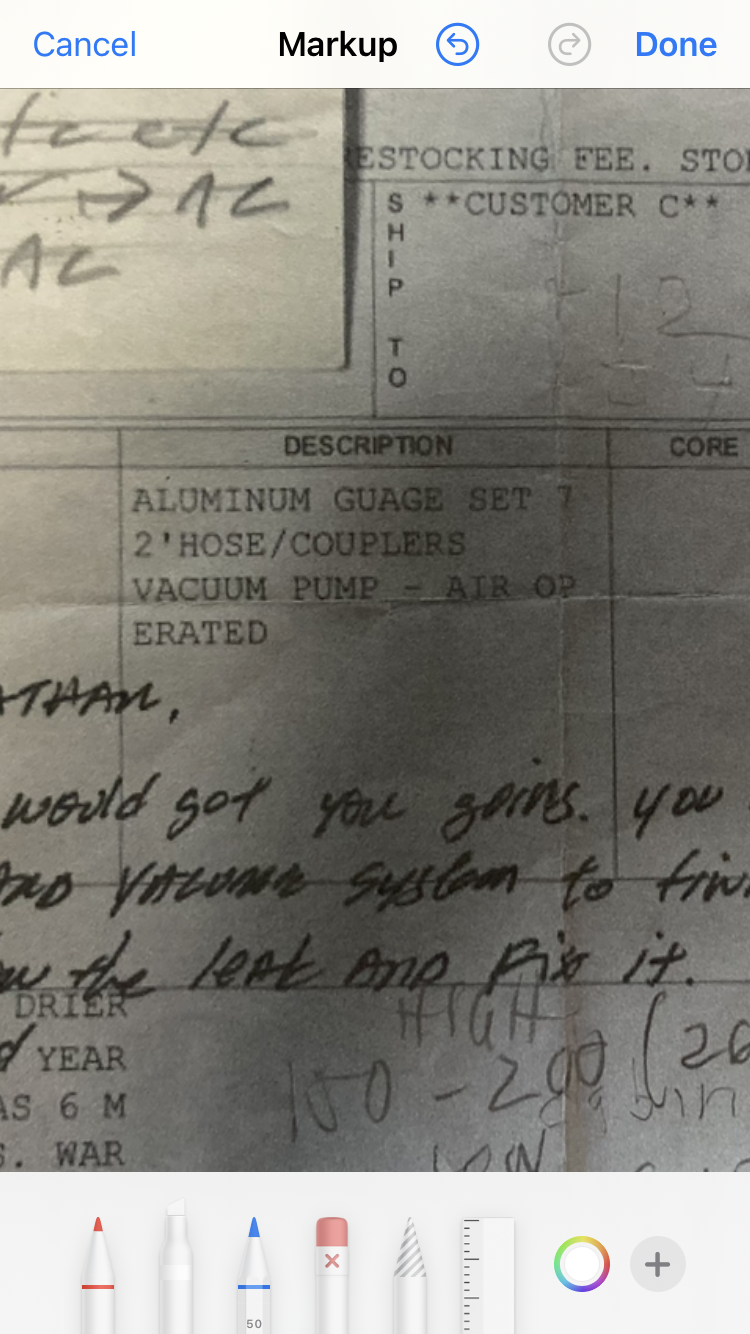 Cancel Markup Done
etc etc
→ AC
AC
ESTOCKING FEE. STO
SHIP TO
**CUSTOMER C**
12
DESCRIPTION CORE
ALUMINUM GUAGE SET 7
2'HOSE/COUPLERS
VACUUM PUMP - AIR OP
ERATED
ATHAN,
would got you going. you
AND VACUUME system to
the leak AND Fix it.
DRIER
HIGH
YEAR
150 - 200 (
AS 6 M
LOW
S. WAR
50